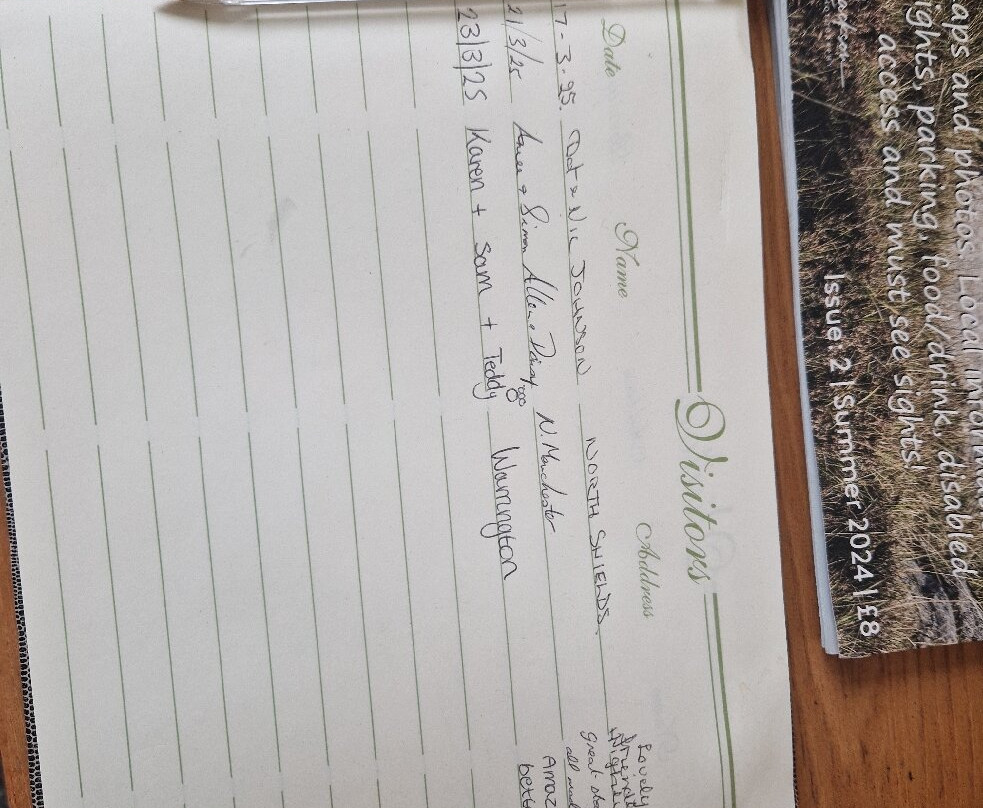 aps and photos. Local
ights, parking, food/drink, disabled
access and must see sights!
Issue 2 | Summer 2024 | £8
Visitors
Date Name Address
17-3-25. Dot & Nic JOHNSON NORTH SHIELDS. Lovely
Great
21/3/25 & Simon Allen & Daisy dog N. Manchester
23/3/25 Karen + Sam + Teddy Warrington